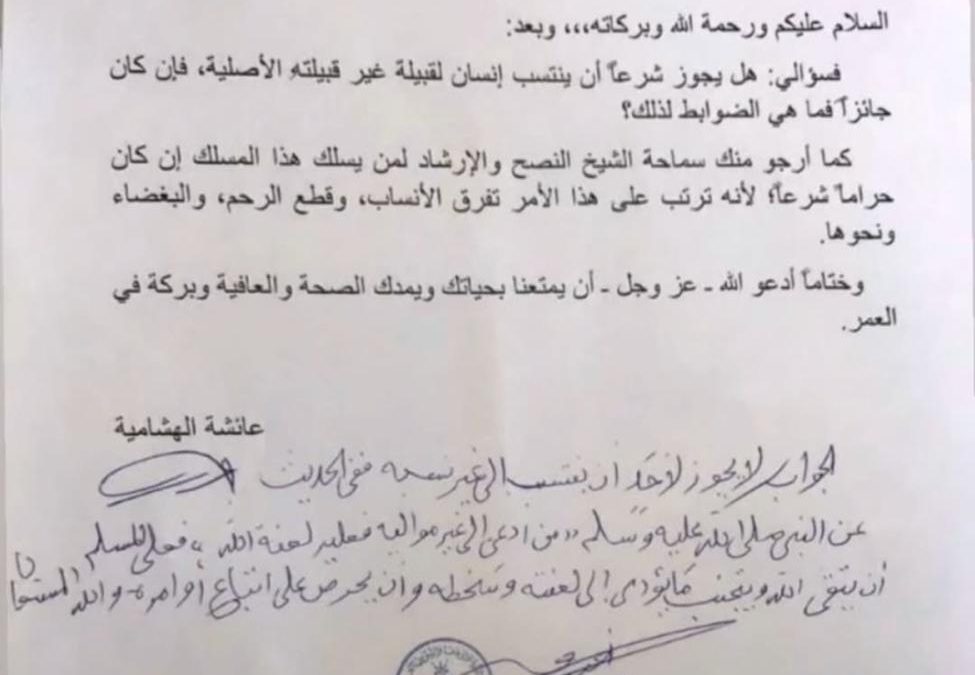 السلام عليكم ورحمة الله وبركاته،،، وبعد:
فسؤالي: هل يجوز شرعاً أن ينتسب إنسان لقبيلة غير قبيلته الأصلية، فإن كان
جائزاً فما هي الضوابط لذلك؟
كما أرجو منك سماحة الشيخ النصح والإرشاد لمن يسلك هذا المسلك إن كان
حراماً شرعاً؛ لأنه ترتب على هذا الأمر تفرق الأنساب، وقطع الرحم، والبغضاء
ونحوها.
وختاماً أدعو الله - عز وجل - أن يمتعنا بحياتك ويمدك الصحة والعافية وبركة في
العمر.
عائشة الهشامية
الجواب لا يجوز لأحد أن ينتسب إلى غير نسبه ففي الحديث
عن النبي صلى الله عليه وسلم «من ادعى إلى غير مواليه فعليه لعنة الله» فعلى المسلم
أن يتقي الله ويتجنب ما يؤدي إلى لعنته وسخطه وأن يحرص على اتباع أوامره والله المستعان